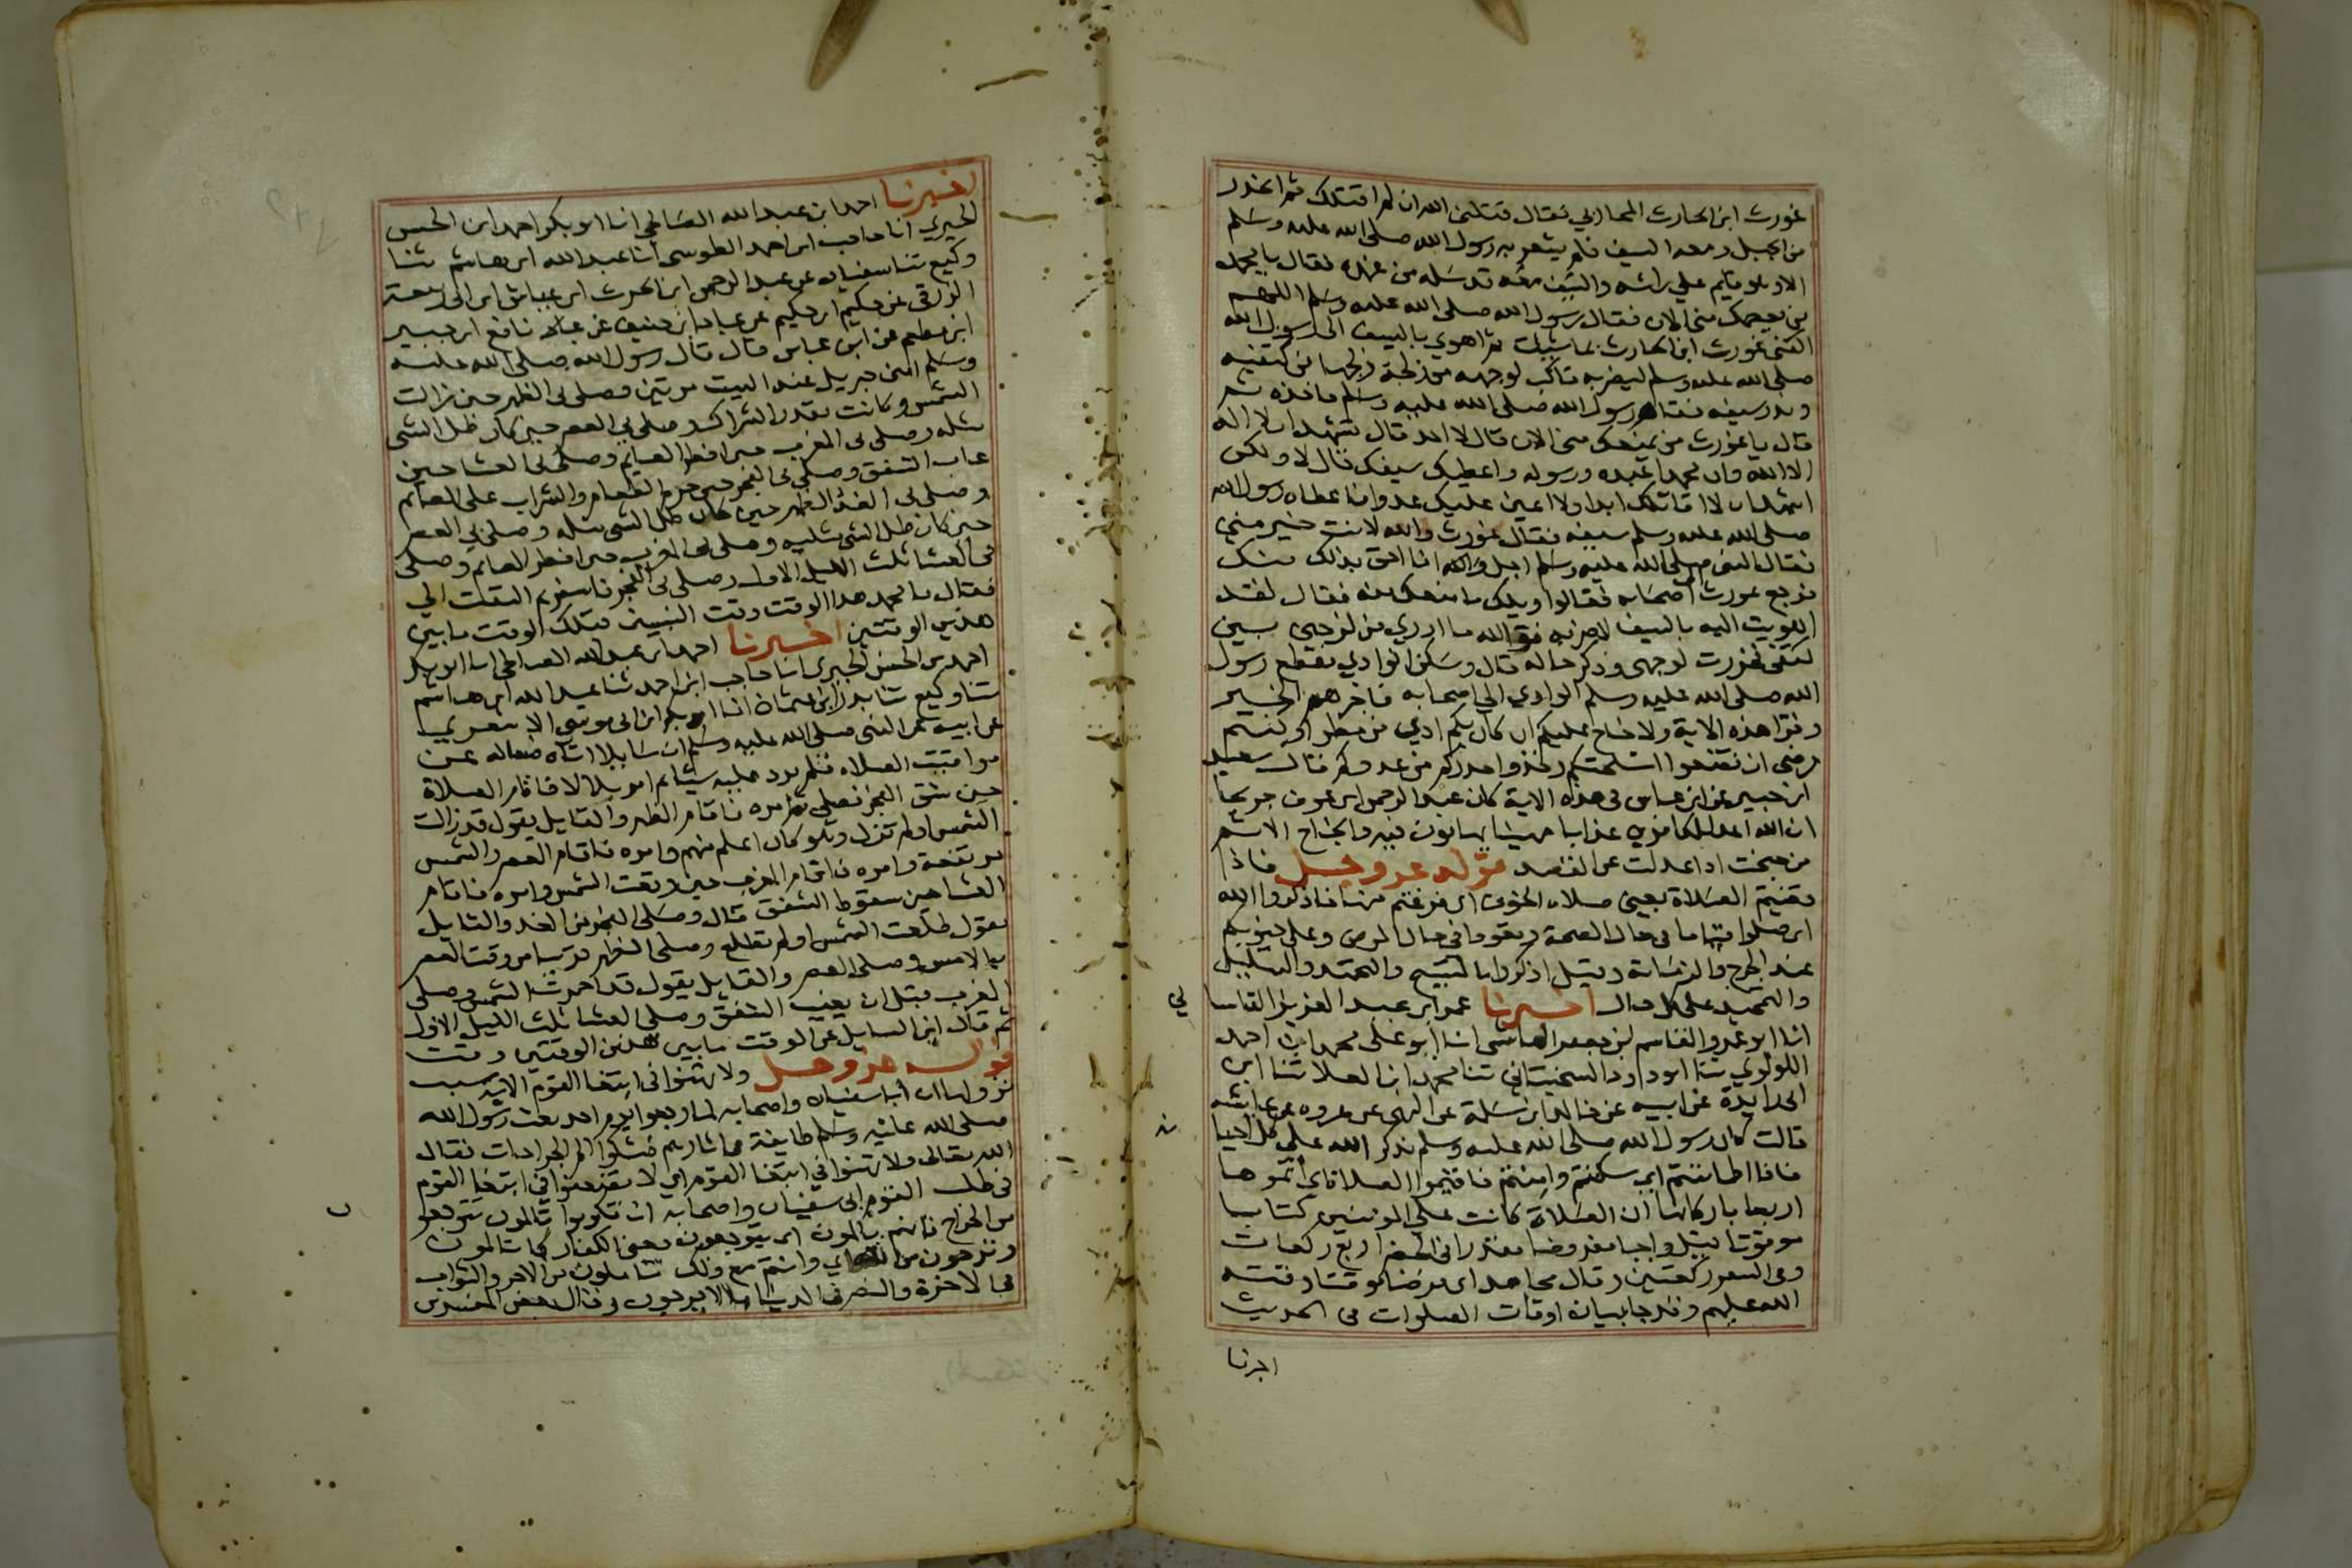 غورث ابن الحارث المحاربي فقال قتلني الله ان لم اقتلك ثم انحدر
من الجبل ومعه السيف فلم يشعر به رسول الله صلى الله عليه وسلم
الا وهو قايم على راسه والسيف معه قد سله من غمده فقال يا محمد
من يعصمك مني الان فقال رسول الله صلى الله عليه وسلم اللهم
اكفني غورث ابن الحارث بما شيت ثم اهوي بالسيف الى رسول الله
صلى الله عليه وسلم ليضربه فاكب لوجهه من زلخة زلخها من كتفيه
وندر سيفه فقام رسول الله صلى الله عليه وسلم فاخذه ثم
قال يا غورث من يمنعك مني الان قال لا احد قال تشهد ان لا اله
الا الله وان محمدا عبده ورسوله واعطيك سيفك قال لا ولكن
اشهد ان لا اقاتلك ابدا ولا اعين عليك عدوا فاعطاه رسول الله
صلى الله عليه وسلم سيفه فقال غورث والله لانت خير مني
فقال النبي صلى الله عليه وسلم اجل والله انا احق بذلك منك
فرجع غورث اصحابه فقالوا ويلك ما منعك منه فقال لقد
اهويت اليه بالسيف لاضربه فوالله ما ادري من لزجني بين
كتفي فخررت لوجهي وذكر حاله قال وسكن الوادي فقطع رسول
الله صلى الله عليه وسلم الوادي الي اصحابه فاخبرهم الخبر
وقرا هذه الاية ولا جناح عليكم ان كان بكم اذي من مطر او كنتم
مرضى ان تضعوا اسلحتكم وخذوا حذركم من عدوكم قال سعيد
ابن جبير عن ابن عباس في هذه الاية كان عبد الرحمن ابن عوف جريحا
ان الله اعد للكافرين عذابا مهينا يهانون فيه والجناح الاثم
من جنحت اذا عدلت عن القصد قوله عز وجل فاذا
قضيتم الصلاة يعني صلاه الخوف اي فرغتم منها فاذكروا الله
اي صلوا قياما في حال الصحة وقعودا في حال المرض وعلى جنوبكم
عند الجرح والزمانة وقيل اذكروا بالتسبيح والتحميد والتهليل
والتمجيد على كل حال اخبرنا عمر ابن عبد العزيز القاسا
ني
انا ابو عمرو القاسم ابن جعفر الهاشمي انا ابو علي محمد ابن احمد
اللولوي ثنا ابو داود السجستاني ثنا محمد ابن العلا ثنا ابن
ابي زايدة عن ابيه عن خالد ابن سلمة عن البهي عن عروه عن عايشه
قالت كان رسول الله صلى الله عليه وسلم يذكر الله على كل احيا
نه
فاذا اطماننتم اي سكنتم وامنتم فاقيموا الصلاة اي اتموها
اربعا باركانها ان الصلاة كانت على المومنين كتابا
موقوتا قيل واجبا مفروضا مقدرا في الحضر اربع ركعات
وفي السفر ركعتين وقال مجاهد اي فرضا موقتا وقته
الله عليهم وقد جا بيان اوقات الصلوات في الحديث
اخبرنا
اخبرنا احمد ابن عبد الله الصالحي انا ابو بكر احمد ابن الحسن
الحيري انا حاجب ابن احمد الطوسي انا عبد الله ابن هاشم ثنا
وكيع ثنا سفيان عن عبد الرحمن ابن الحرث ابن عياش ابن ابي ربيعة
الزرقي عن حكيم ابن حكيم عن عباد ابن حنيف عن نافع ابن جبير
ابن مطعم عن ابن عباس قال قال رسول الله صلى الله عليه
وسلم امني جبريل عند البيت مرتين فصلى بي الظهر حين زالت
الشمس وكانت بقدر الشراك وصلى بي العصر حين كان ظل الشي
مثله وصلى بي المغرب حين افطر الصايم وصلى بي العشا حين
غاب الشفق وصلى بي الفجر حين حرم الطعام والشراب على الصايم
وصلى بي الغد الظهر حين كان ظل الشي مثله وصلى بي العصر
حين كان ظل الشي مثليه وصلى بي المغرب حين افطر الصايم وصلى
بي العشا ثلث الليل الاول وصلى بي الفجر فاسفر ثم التفت الي
فقال يا محمد هذا الوقت وقت النبيين قبلك الوقت ما بين
هذين الوقتين اخبرنا احمد ابن عبد الله الصالحي انا ابو بكر
احمد بن الحسن الحيري انا حاجب ابن احمد ثنا عبد الله ابن هاشم
ثنا وكيع ثنا بدر ابن عثمان انا ابو بكر ابن ابي موسى الاشعري
عن ابيه عن النبي صلى الله عليه وسلم ان سايلا اتاه فساله عن
مواقيت الصلاه فلم يرد عليه شيا ثم امر بلالا فاقام الصلاة
حين شق الفجر فصلى ثم امره فاقام الظهر والقايل يقول قد زالت
الشمس او لم تزل وهو كان اعلم منهم وامره فاقام العصر والشمس
مرتفعة وامره فاقام المغرب حين وقعت الشمس وامره فاقام
العشا حين سقوط الشفق قال وصلى الفجر من الغد والقايل
يقول طلعت الشمس او لم تطلع وصلى الظهر قريبا من وقت العصر
بالامس وصلى العصر والقايل يقول قد احمرت الشمس وصلى
المغرب قبل ان يغيب الشفق وصلى العشا ثلث الليل الاول
ثم قال اين السايل عن الوقت ما بين هذين الوقتين وقت
قوله عز وجل ولا تهنوا في ابتغا القوم الاية سبب
نزولها ان ابا سفيان واصحابه لما رجعوا يوم احد بعث رسول الله
صلى الله عليه وسلم طايفة في اثارهم فشكوا الم الجراحات فقال
الله تعالى ولا تهنوا في ابتغا القوم اي لا تضعفوا في ابتغا القوم
في طلب القوم ابي سفيان واصحابه ان تكونوا تالمون تتوجعو
ن
من الجراح فانهم يالمون اي يتوجعون يعني الكفار كما تالمون
وترجون من الله اي وانتم مع ذلك تاملون من الاجر والثواب
في الاخرة والنصر في الدنيا ما لا يرجون وقال بعض المفسرين